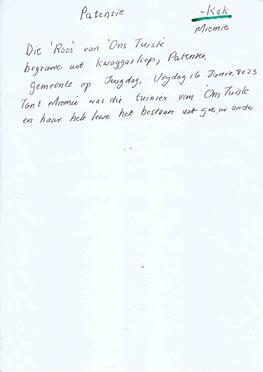 Patensie
- Kok
Miemie
Die 'Roos' van 'Ons Tuiste'
begrawe uit Kwaggaskop, Patensie
gemeente op Jeugdag, Vrydag 16 Junie 2023
Tant Miemie was die tuinier van 'Ons Tuiste
en haar hele lewe het bestaan uit gee vir ander.